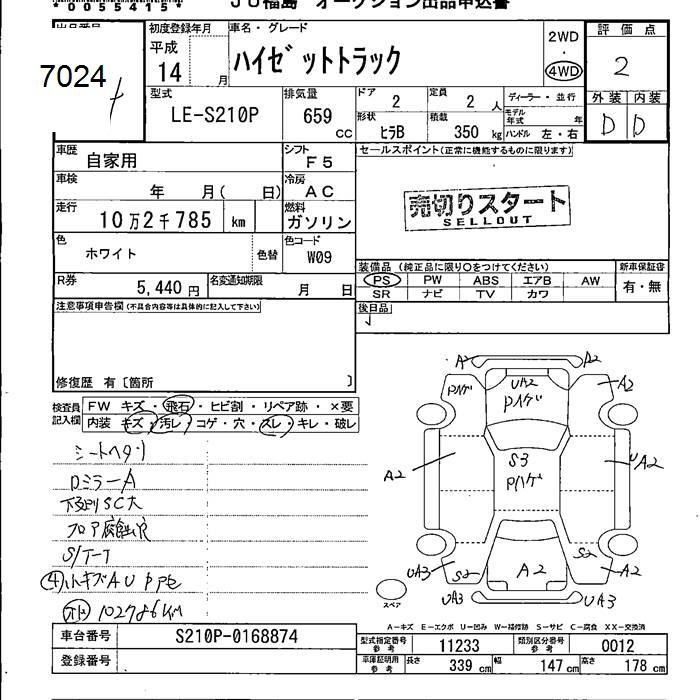 00554150
JU福島 オークション出品申込書
出品番号
7024
初度登録年月
平成
14 月
車名・グレード
ハイゼットトラック
2WD
・
4WD
評価点
2
外装 内装
D D
型式
LE-S210P
排気量
659 CC
ドア
2
定員
2 人
ディーラー・並行
モデル年式 年
形状
ヒラB
積載
350 kg
ハンドル 左・右
車歴
自家用
シフト
F5
セールスポイント(正常に機能するものに限ります)
車検
年 月( 日)
冷房
AC
走行
10万2千785 km
燃料
ガソリン
売切りスタート
SELLOUT
色
ホワイト
色替
色コード
W09
装備品 (純正品に限り○をつけてください)
新車保証書
PS PW ABS エアB AW
SR ナビ TV カワ
有・無
R券
5,440 円
名変通知期限
月 日
後日品
注意事項申告欄(不具合内容等は具体的に記入して下さい)
修復歴 有〔箇所 〕
検査員記入欄
FW キズ・飛石・ヒビ割・リペア跡・×要
内装 キズ・汚レ・コゲ・穴・スレ・キレ・破レ
シートヘタリ
ロミラーA
下廻りSC大
フロア腐蝕穴
S/T-T
④小キズAU
102786KM
A2 A2
Pハゲ
UA2
Pハゲ
A2
A2
S3
Pハゲ
UA2
UA3
S2
A2
S2
A2
UA3
UA3
スペア
A-キズ E-エクボ U-凹み W-補修跡 S-サビ C-腐食 XX-交換済
車台番号
S210P-0168874
型式指定番号
参考
11233
類別区分番号
参考
0012
登録番号
車庫証明用
参考
長さ
339 cm
幅
147 cm
高さ
178 cm